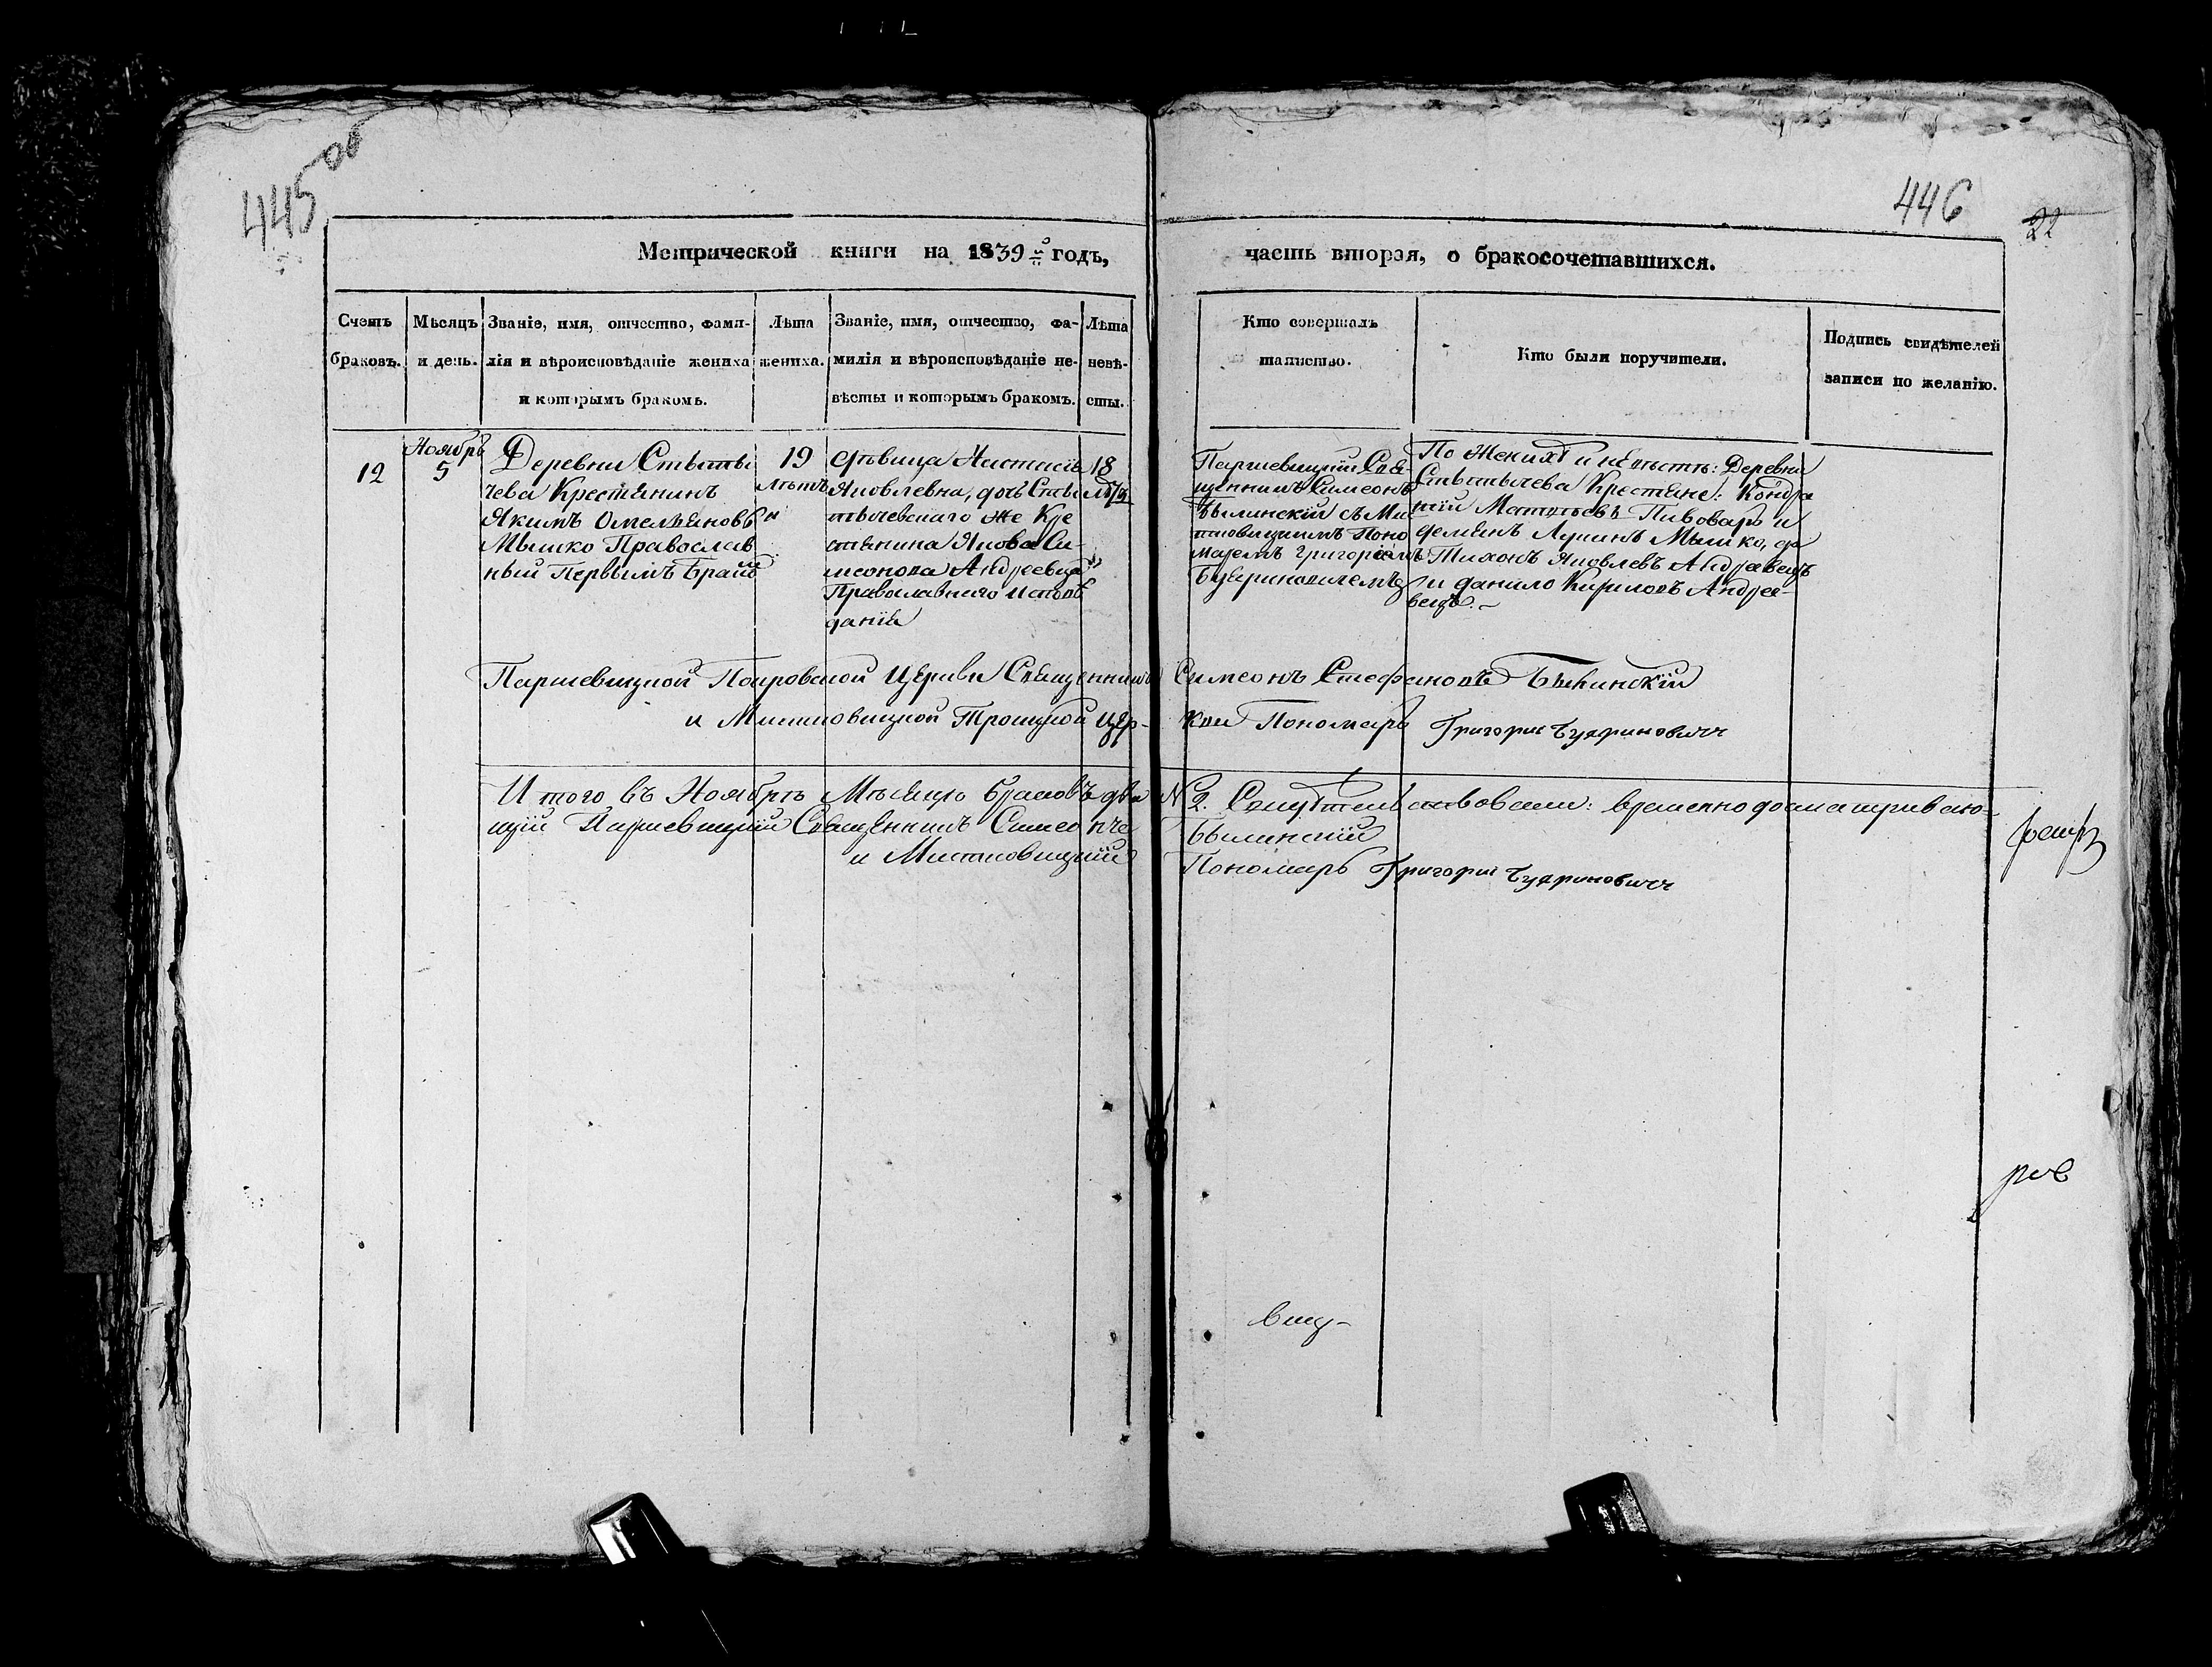 445
446
22
Метрической книги на 1839 й годъ,
часть вторая, о бракосочетавшихся.
Счетъ браковъ.
Мѣсяцъ и день.
Званіе, имя, отчество, фами-
лія и вѣроисповѣданіе жениха
и которымъ бракомъ.
Лѣта жениха.
Званіе, имя, отчество, фа-
милія и вѣроисповѣданіе не-
вѣсты и которымъ бракомъ.
Лѣта невѣ-
сты.
Кто совершалъ
таинство.
Кто были поручители.
Подпись свидѣтелей
записи по желанію.
12
Ноябрь
5
Деревни Стыты
чева Крестьянинъ
Якимъ Омельяновъ
Мышко Православ
ный Первымъ Бракомъ
19
Лѣтъ
Дѣвица Настасія
Яковлевна, дочь Сты
тычевскаго же Кре
стьянина Якова Си-
меонова Андреевца
Православнаго исповѣ
данія
18
Паршевицкій Свя-
щенникъ Симеонъ
Бѣлинскій съ Ми
тковицкимъ Поно
маремъ Григоріемъ
Будзиновичемъ
По Женихѣ и невѣстѣ: Деревни
Стытычева Крестьяне: Кондра
тій Матѳеевъ Пивоваръ и
Демянъ Лукинъ Мышко, да
Тихонъ Яковлевъ Андреевецъ
и Данило Кириловъ Андрее-
вецъ.
Паршевицкой Покровской Церкви Священникъ Симеонъ Стефановъ Бѣлинскій
и Митковицкой Троицкой Цер-
кви Пономарь Григорій Будзиновичъ
Итого въ Ноябрѣ Мѣсяцѣ браковъ два № 2. Свидѣтельствовали: временно досматриваю-
щій Паршевицкій Священникъ Симеонъ Бѣлинскій
и Митковицкій Пономарь Григорій Будзиновичъ